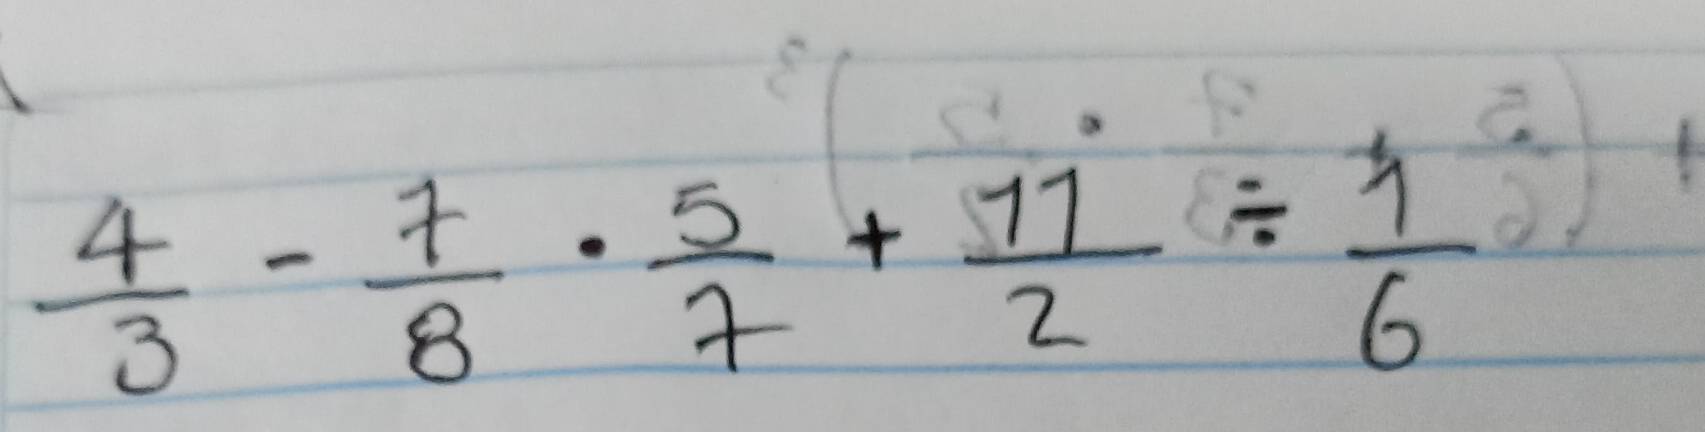 4/3 - 7/8 · 5/7 + 11/2 ÷ 1/6